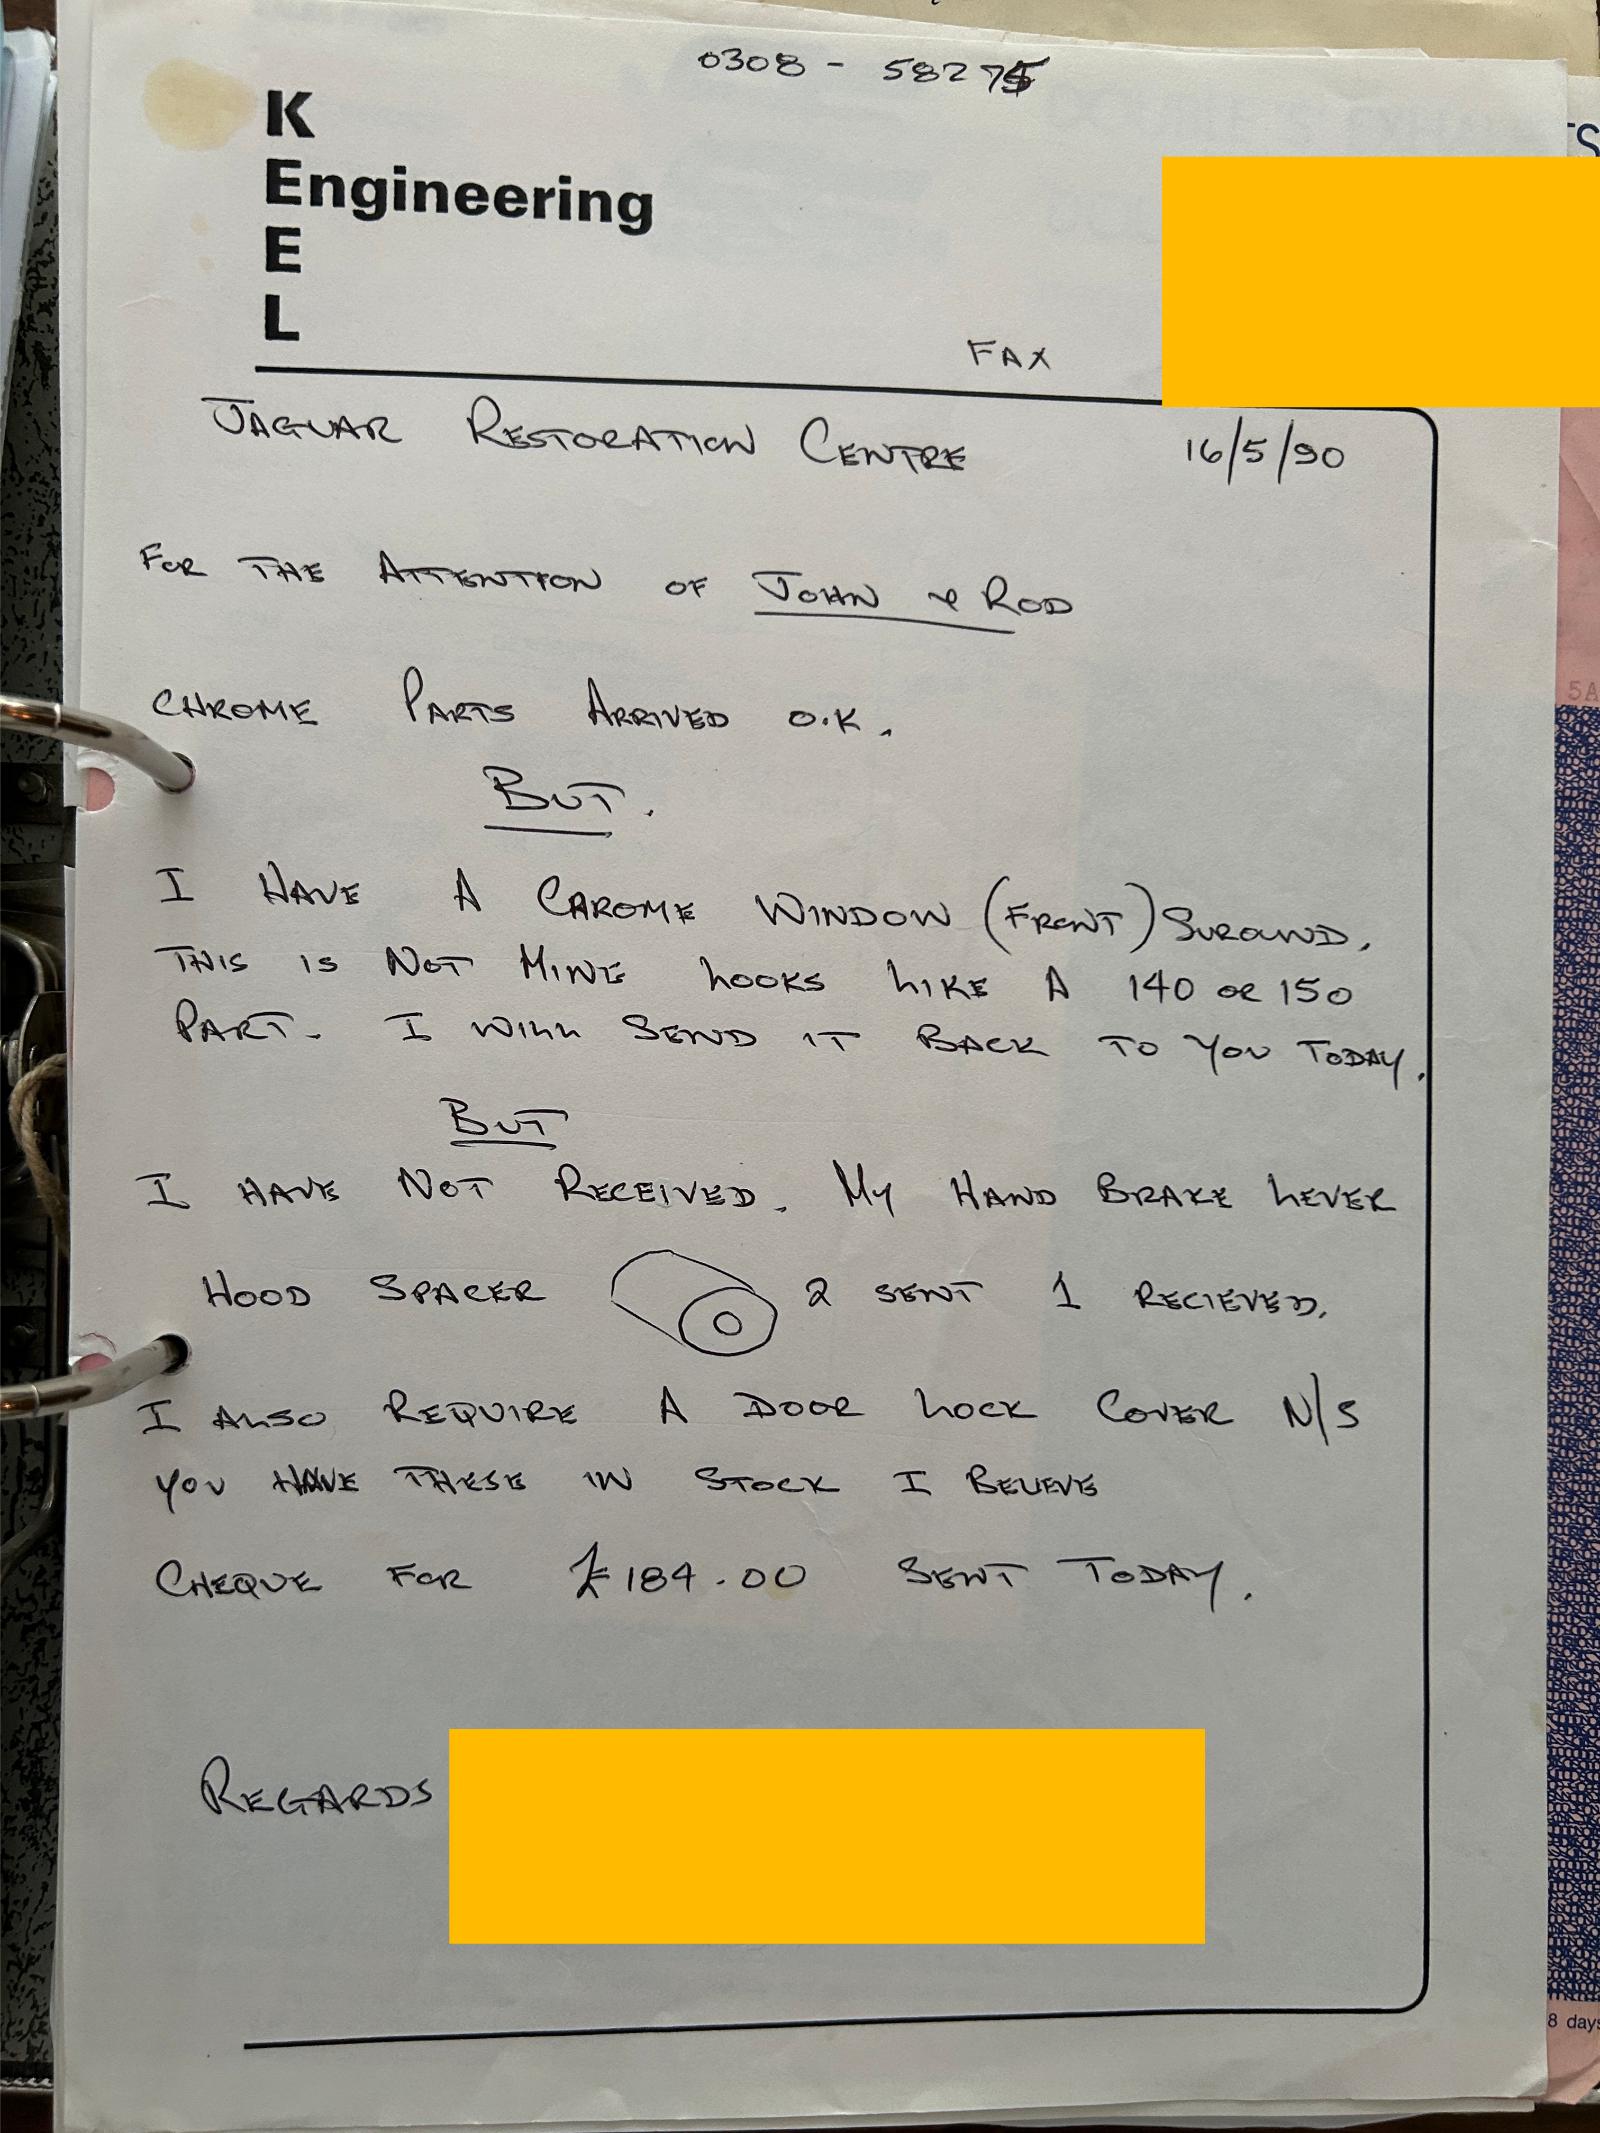 0308 - 58275
K
Engineering
E
L
FAX
JAGUAR RESTORATION CENTRE 16/5/90
FOR THE ATTENTION OF JOHN & ROD
CHROME PARTS ARRIVED O.K.
BUT.
I HAVE A CHROME WINDOW (FRONT) SUROUND.
THIS IS NOT MINE LOOKS LIKE A 140 OR 150
PART. I WILL SEND IT BACK TO YOU TODAY.
BUT
I HAVE NOT RECEIVED. MY HAND BRAKE LEVER
HOOD SPACER 2 SENT 1 RECIEVED.
I ALSO REQUIRE A DOOR LOCK COVER N/S
YOU HAVE THESE IN STOCK I BELIEVE
CHEQUE FOR £184.00 SENT TODAY.
REGARDS
TS
5A
8 days